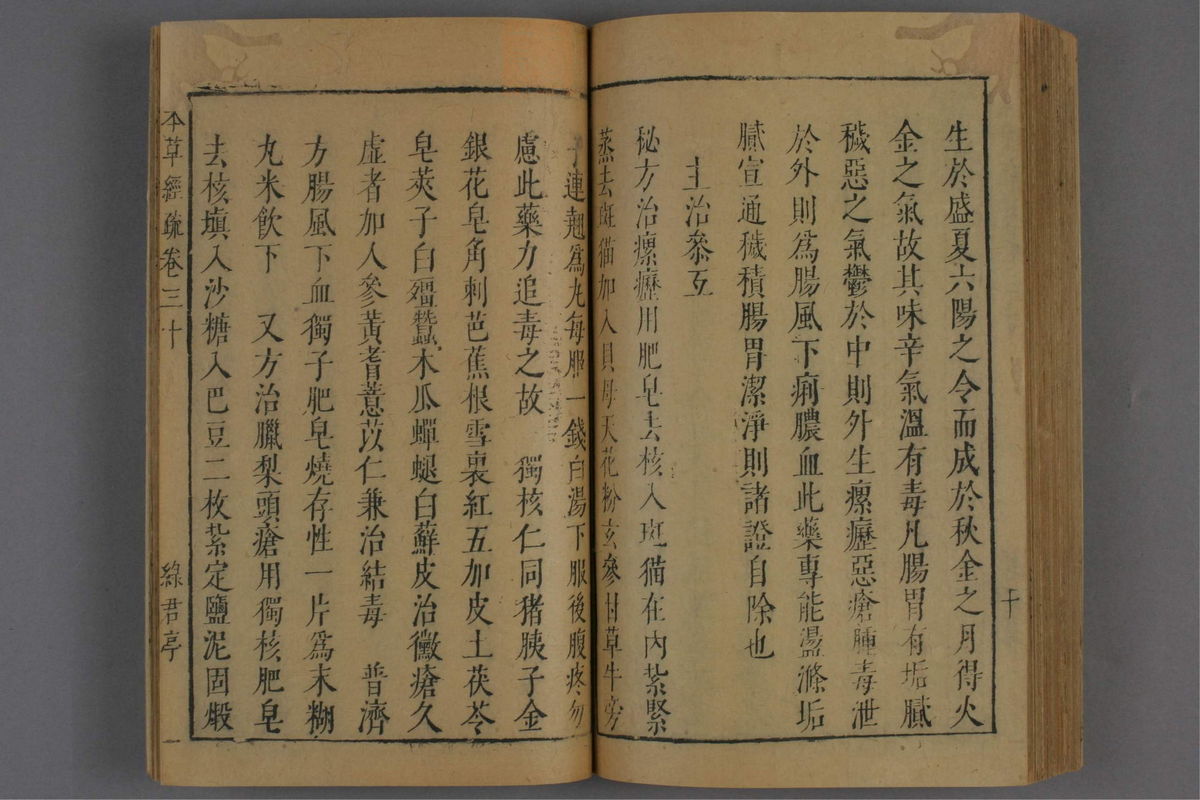 生於盛夏六陽之令而成於秋金之月得火
金之氣故其味辛氣溫有毒凡腸胃有垢膩
穢惡之氣鬱於中則外生瘰癧惡瘡腫毒泄
於外則爲腸風下痢膿血此藥專能盪滌垢
膩宣通穢積腸胃潔淨則諸證自除也
主治叅互
秘方治瘰癧用肥皂去核入斑猫在內紮緊
蒸去斑猫加入貝母天花粉玄參甘草牛蒡
子連翹爲丸每服一錢白湯下服後腹疼勿
慮此藥力追毒之故 獨核仁同猪胰子金
銀花皂角刺芭蕉根雪裏紅五加皮土茯苓
皂莢子白殭蠶木瓜蟬蛻白蘚皮治黴瘡久
虛者加人參黃耆薏苡仁兼治結毒 普濟
方腸風下血獨子肥皂燒存性一片爲末糊
丸米飲下 又方治臘梨頭瘡用獨核肥皂
去核塡入沙糖入巴豆二枚紮定鹽泥固煅
本草經疏卷三十
綠君亭
十